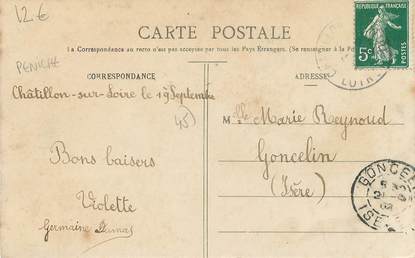 12 €
CARTE POSTALE
La Correspondance au recto n'est pas acceptée par tous les Pays Étrangers. (Se renseigner à la
PENICHE
CORRESPONDANCE
ADRESSE
RÉPUBLIQUE FRANÇAISE
5c
Châtillon-sur-Loire le 19 Septembre
45)
Mlle Marie Reynoud
Goncelin
(Isère)
Bons baisers
Violette
Germaine
GONCEL
ISÈ